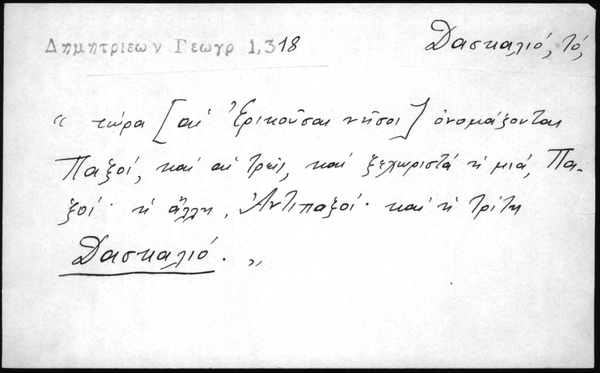 Δημητριεων Γεωγρ 1,318
Δασκαλιό, τό,
“ τώρα [αἱ Ἐρικοῦσαι νῆσοι] ὀνομάζονται
Παξοί, καί αἱ τρεῖς, καί ξεχωριστά ἡ μιά, Πα-
ξοί· ἡ ἄλλη, Ἀντιπαξοί· καί ἡ τρίτη
Δασκαλιό. „